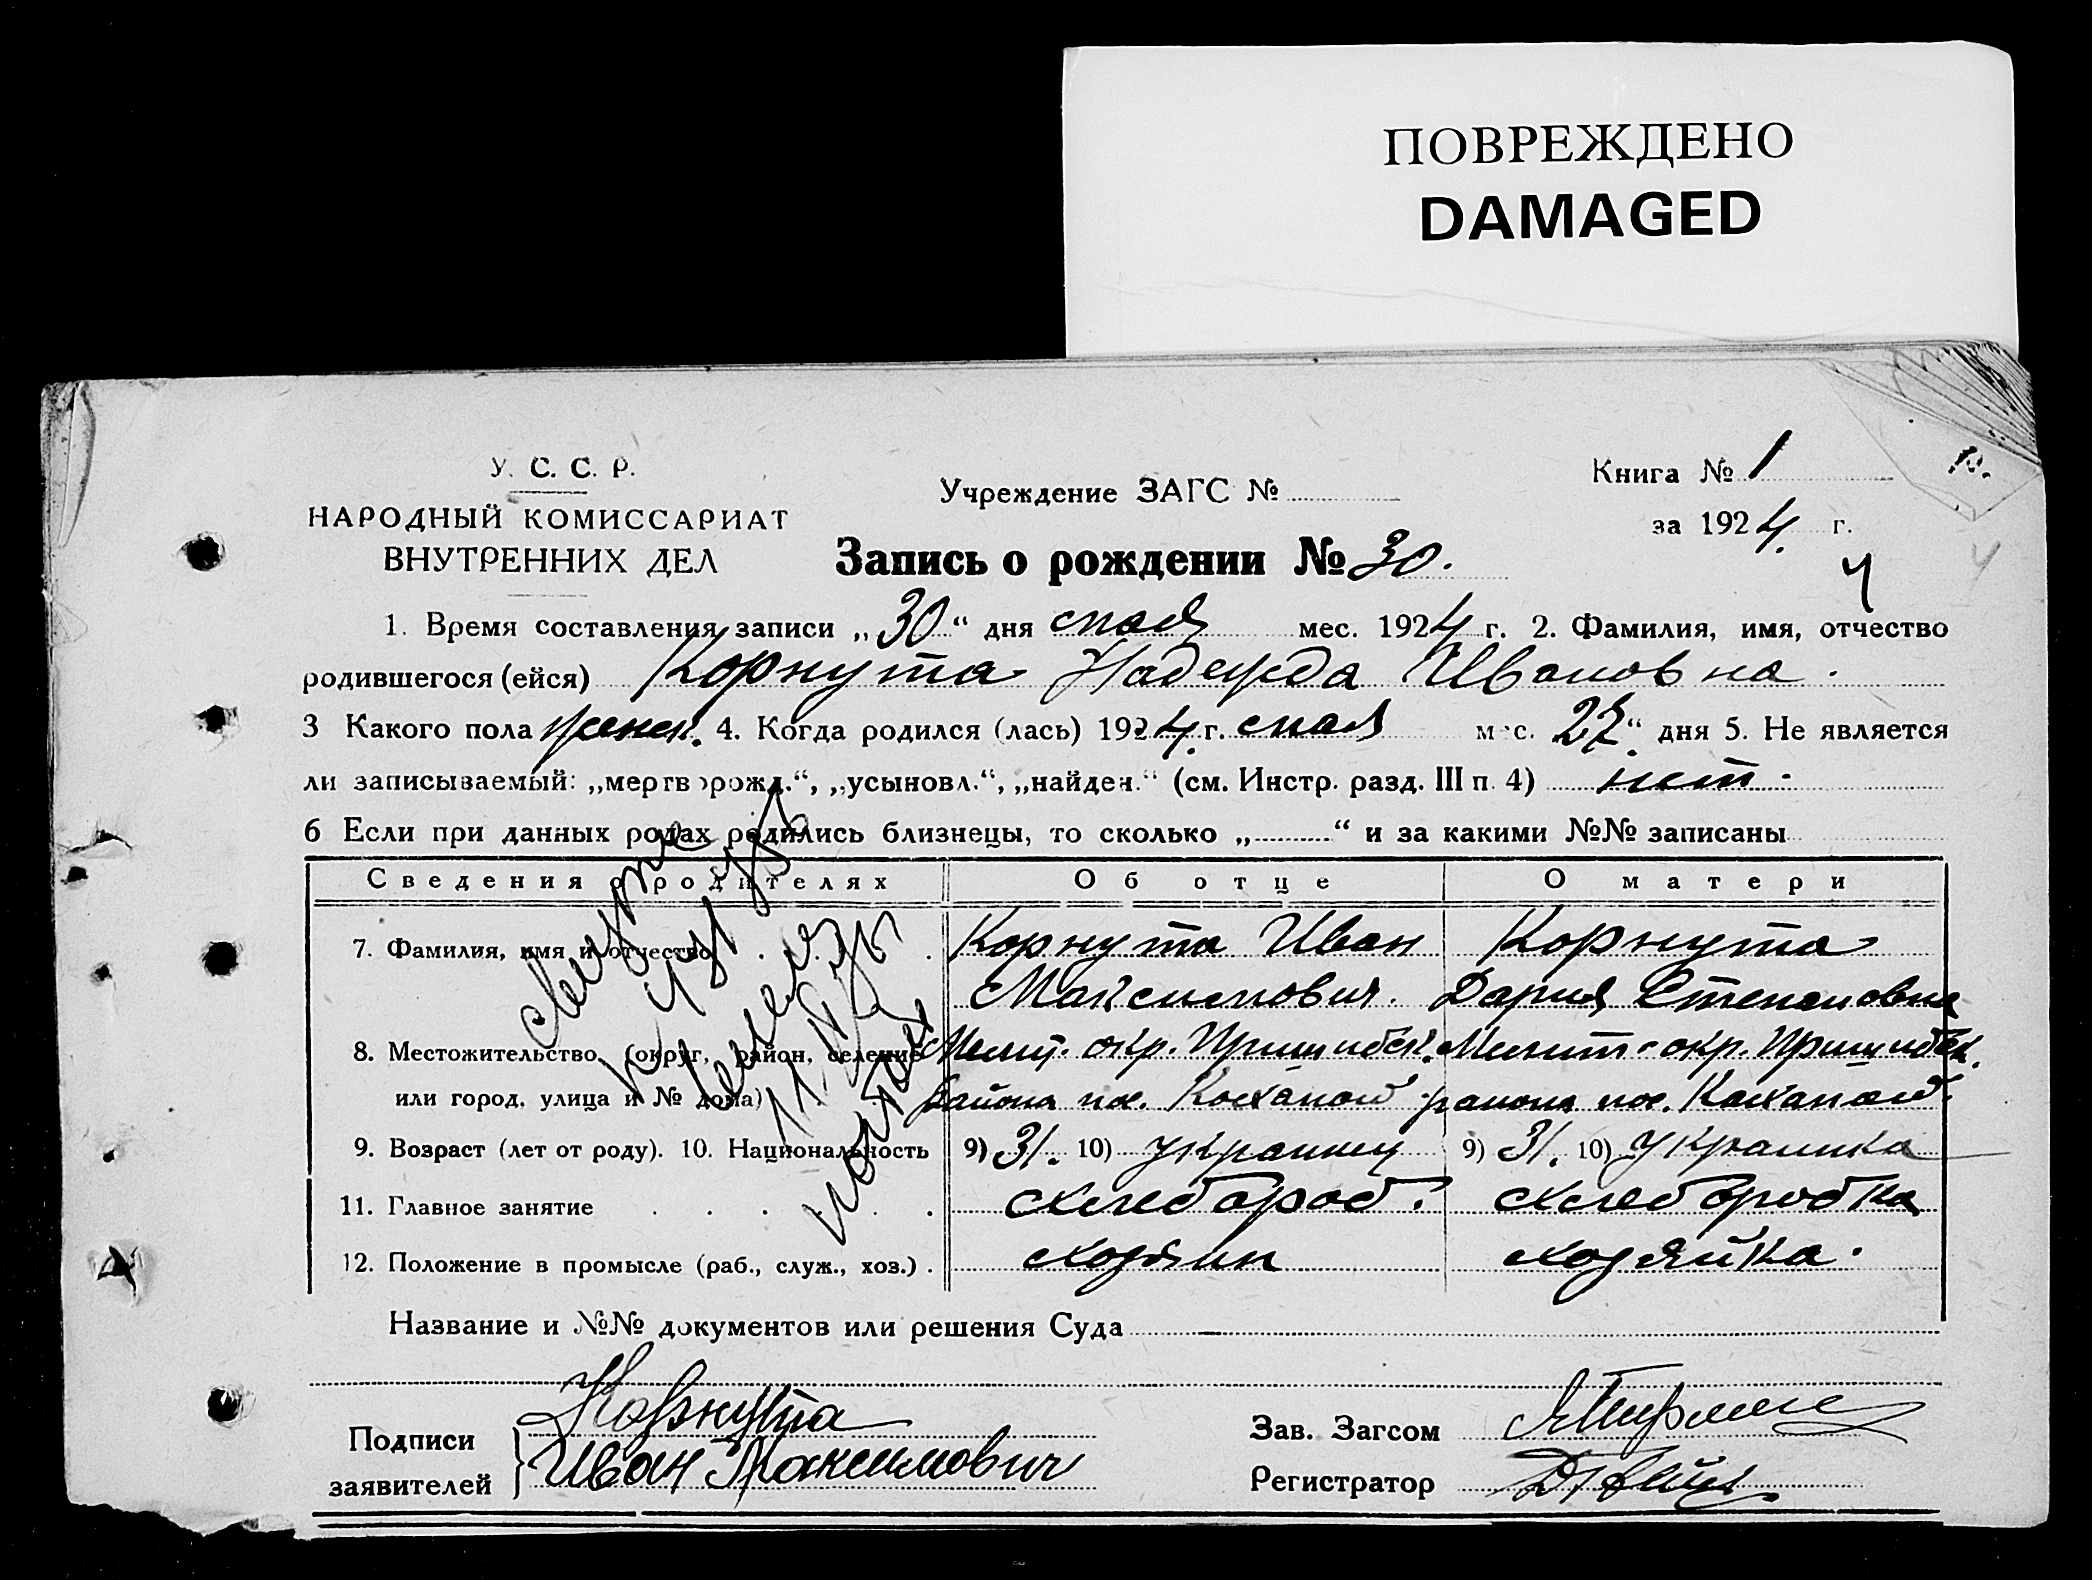 ПОВРЕЖДЕНО
DAMAGED
У. С. С. Р.
НАРОДНЫЙ КОМИССАРИАТ
ВНУТРЕННИХ ДЕЛ
Учреждение ЗАГС №
Книга № 1
за 1924 г.
Запись о рождении № 30.
4
1. Время составления записи „30“ дня мая мес. 1924 г. 2. Фамилия, имя, отчество
родившегося (ейся) Корнута Надежда Ивановна.
3 Какого пола женск. 4. Когда родился (лась) 1924 г. мая мес. 27“ дня 5. Не является
ли записываемый: „мертворожд.“, „усыновл.“, „найден.“ (см. Инстр. разд. III п. 4) нет.
6 Если при данных родах родились близнецы, то сколько „ “ и за какими №№ записаны
Сведения о родителях Об отце О матери
7. Фамилия, имя и отчество Корнута Иван Корнута
Максимович. Дария Степановна
8. Местожительство (округ, район, селение Мелит. окр. Пришибск. Мелит. окр. Пришибск.
или город, улица и № дома) района пос. района пос.
9. Возраст (лет от роду). 10. Национальность 9) 31. 10) украинец 9) 31. 10) украинка
11. Главное занятие хлебороб. хлеборобка
12. Положение в промысле (раб., служ., хоз.) хозяин хозяйка.
Название и №№ документов или решения Суда
Подписи заявителей } Корнута
Иван Максимович
Зав. Загсом
Регистратор